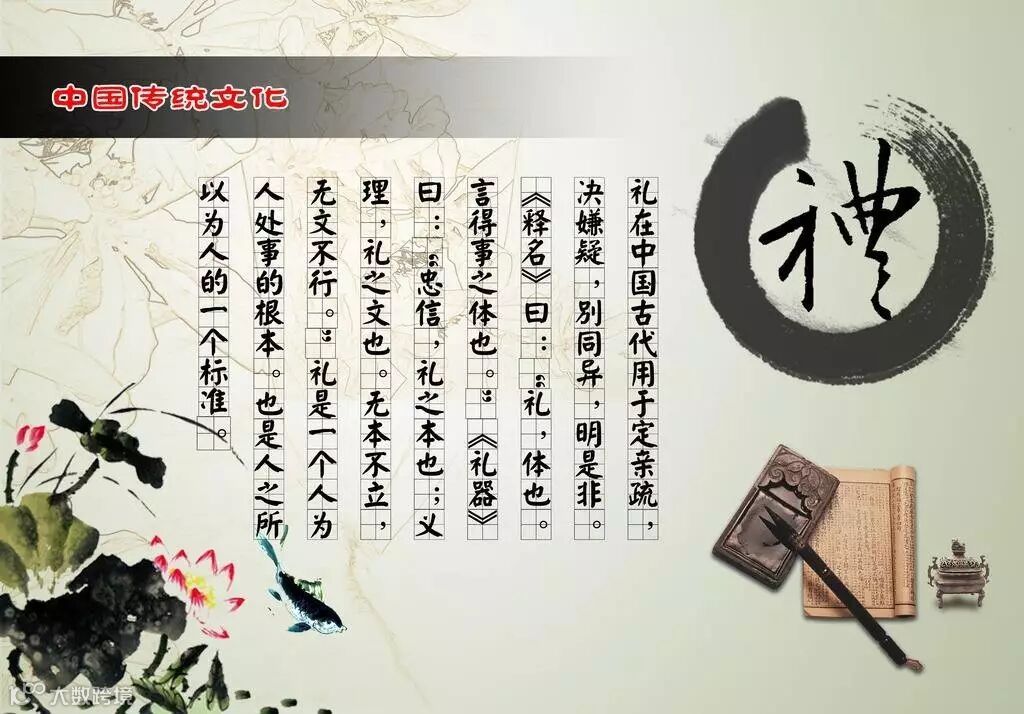 中国传统文化
禮
礼在中国古代用于定亲疏，
决嫌疑，别同异，明是非。
《释名》曰：“礼，体也。
言得事之体也。”《礼器》
曰：“忠信，礼之本也；义
理，礼之文也。无本不立，
无文不行。”礼是一个人为
人处事的根本。也是人之所
以为人的一个标准。
大数跨境